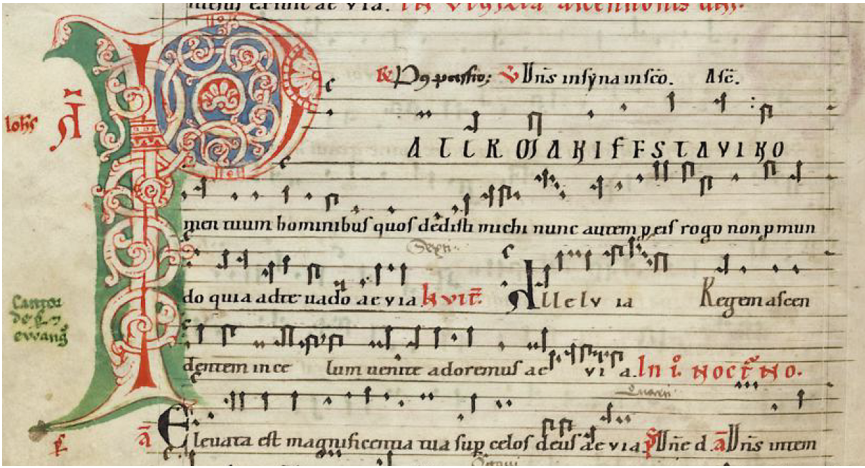 In vigilia ascensionis dni.
Dns in syna in sco. Asc.
PATER MANIFESTAVI NO
men tuum hominibus quos dedisti michi nunc autem p eis rogo non p mun
do quia ad te uado ae v ia Invit. Allelv ia Regem ascen
dentem in ce lum uenite adoremus ae v ia. In i. nocturno.
Eleuata est magnificentia tua sup celos deus ae v ia Dne d. a Dns in tem
Cantor
ewang